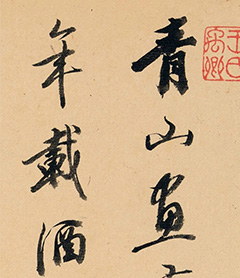 青山畫
年載酒